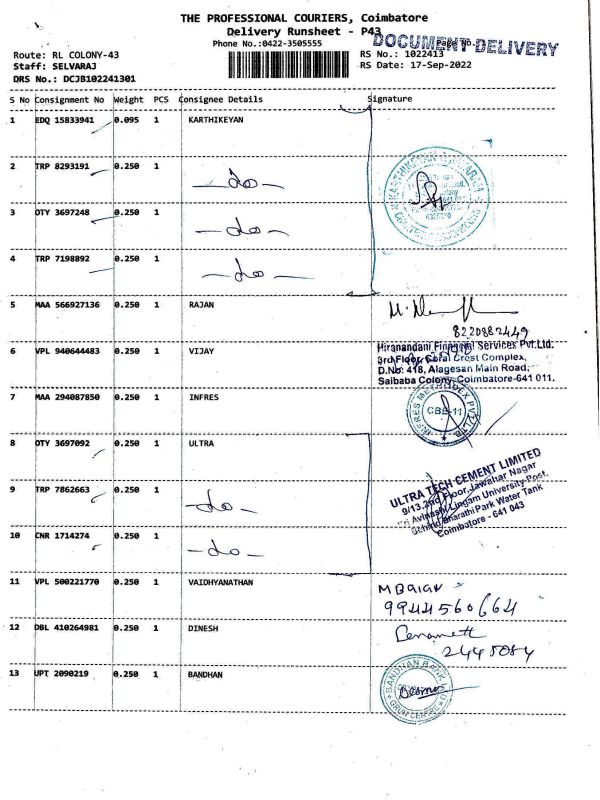 THE PROFESSIONAL COURIERS, Coimbatore
Delivery Runsheet - P43
Phone No.:0422-3505555
DOCUMENT DELIVERY
Page No.
Route: RL COLONY-43
RS No.: 1022413
Staff: SELVARAJ
RS Date: 17-Sep-2022
DRS No.: DCJB102241301
S No Consignment No Weight PCS Consignee Details Signature
1 EDQ 15833941 0.095 1 KARTHIKEYAN
2 TRP 8293191 0.250 1 -do-
3 OTY 3697248 0.250 1 -do-
4 TRP 7198892 0.250 1 -do-
5 MAA 566927136 0.250 1 RAJAN
8220882449
6 VPL 940644483 0.250 1 VIJAY
Hiranandani Financial Services Pvt.Ltd.
3rd Floor, Coral Crest Complex,
D.No: 418, Alagesan Main Road,
Saibaba Colony, Coimbatore-641 011.
7 MAA 294087850 0.250 1 INFRES
CBE-11
8 OTY 3697092 0.250 1 ULTRA
ULTRA TECH CEMENT LIMITED
9/13, 2nd Floor, Jawahar Nagar
Sri Avinashi Lingam University Post,
Behind Bharathi Park Water Tank
Coimbatore - 641 043
9 TRP 7862663 0.250 1 -do-
10 CNR 1714274 0.250 1 -do-
11 VPL 500221770 0.250 1 VAIDHYANATHAN
9944560664
12 DBL 410264981 0.250 1 DINESH
2445084
13 UPT 2090219 0.250 1 BANDHAN
BANDHAN BANK